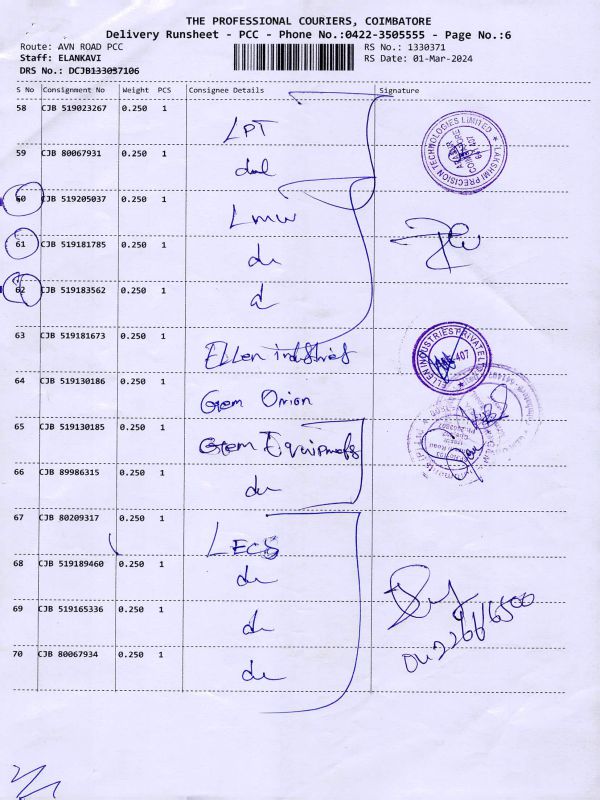 THE PROFESSIONAL COURIERS, COIMBATORE
Delivery Runsheet - PCC - Phone No.:0422-3505555 - Page No.:6
Route: AVN ROAD PCC RS No.: 1330371
Staff: ELANKAVI RS Date: 01-Mar-2024
DRS No.: DCJB133037106
S No Consignment No Weight PCS Consignee Details Signature
58 CJB 519023267 0.250 1 LPT
59 CJB 80067931 0.250 1
60 CJB 519205037 0.250 1 LMW
61 CJB 519181785 0.250 1 du
62 CJB 519183562 0.250 1 d
63 CJB 519181673 0.250 1 Ellen industries
64 CJB 519130186 0.250 1 Gem Orion
65 CJB 519130185 0.250 1 Gem Equipments
66 CJB 89986315 0.250 1 du
67 CJB 80209317 0.250 1 LECS
68 CJB 519189460 0.250 1 du
69 CJB 519165336 0.250 1 du
70 CJB 80067934 0.250 1 du
LAKSHMI PRECISION TECHNOLOGIES LIMITED
ELLEN INDUSTRIES PRIVATE LTD
407